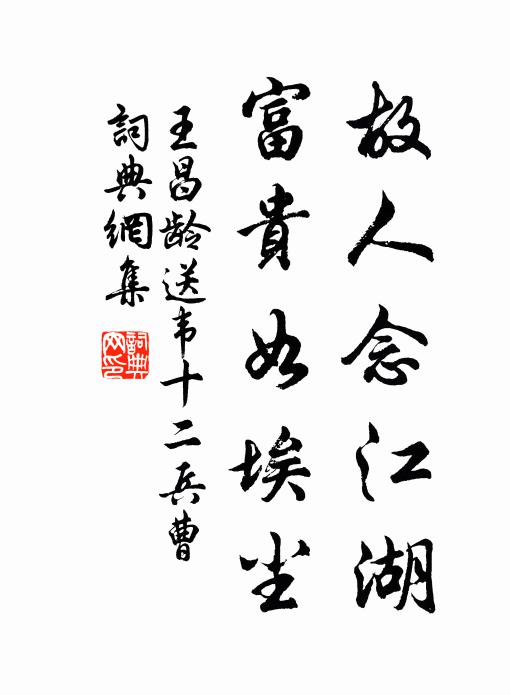 故人念江湖
富貴如埃尘
王昌龄送韦十二兵曹
詞典網集
詞典網印